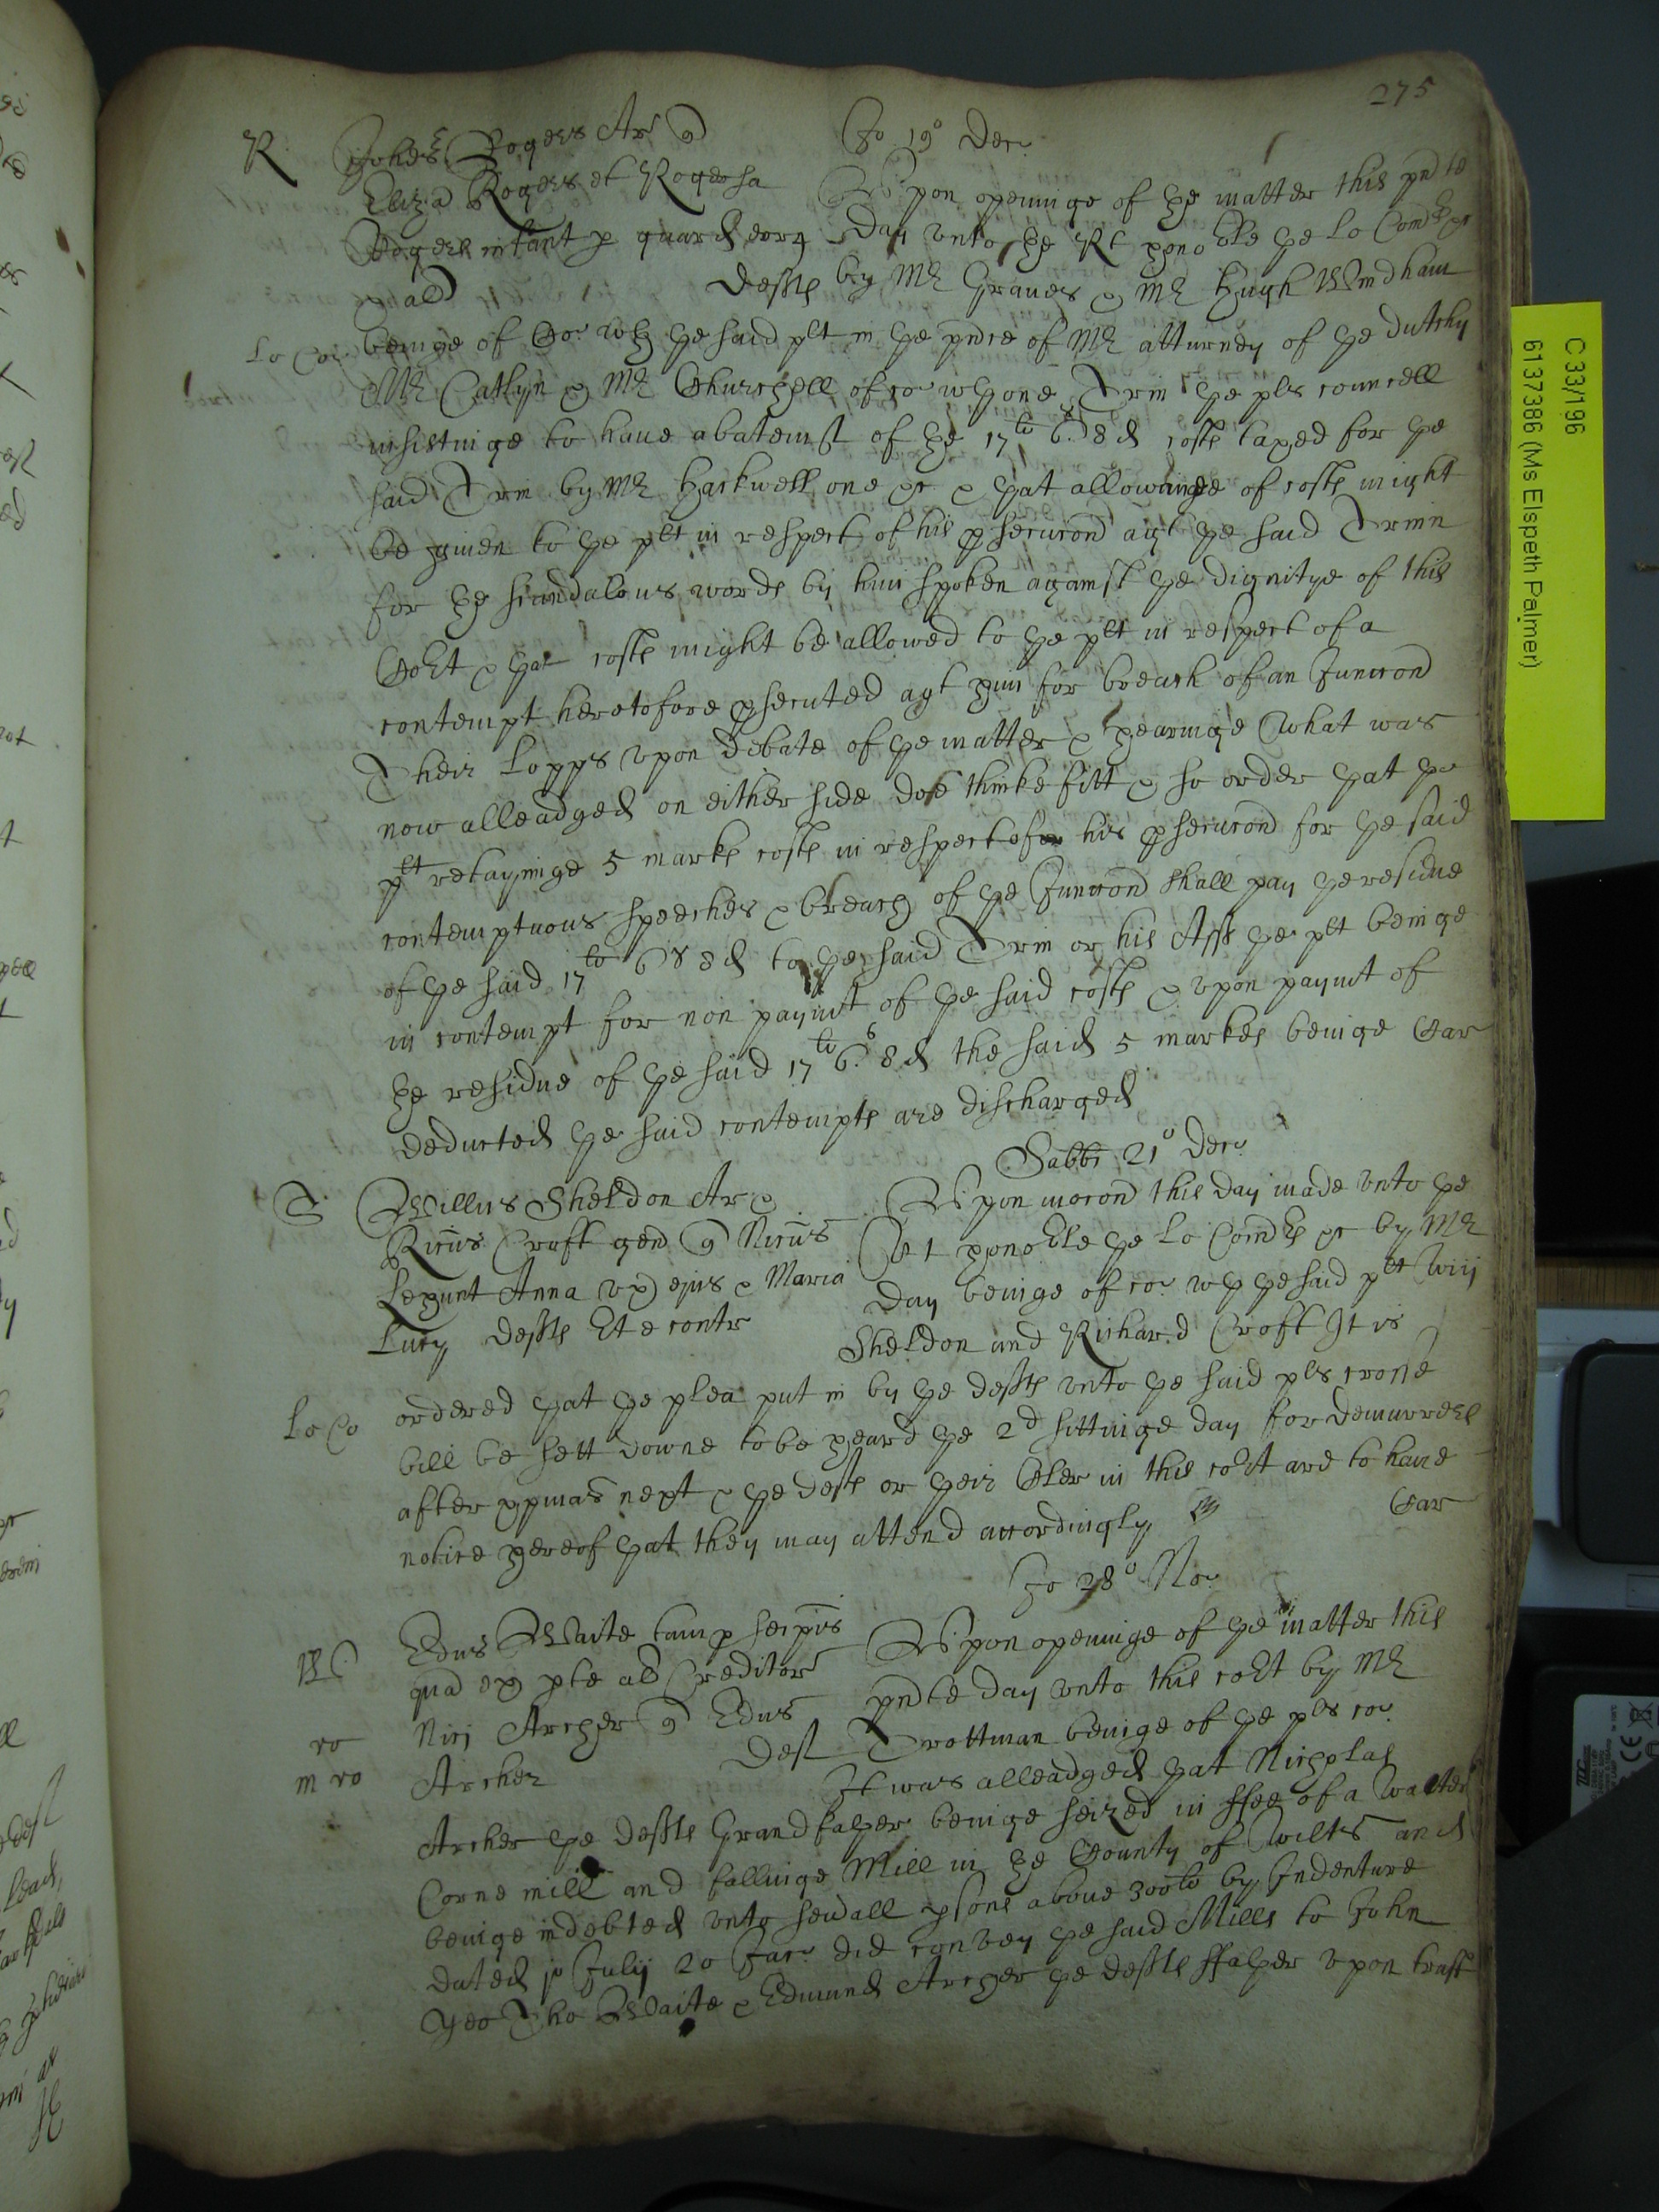 275
R Johes Rogers Ar q Jo 19° Dec
Eliza Rogers et Rogersa Upon openinge of the matter this pnte
Rogers infant p guard eorg day unto the Rt honoble the Lo Comrs
& al deftes by Mr Graves & Mr Hugh Windham
Lo Co beinge of Co wth the said plt in the pnce of Mr atturney of the dutchy
Mr Catlyn & Mr Churchell of co wth one Trin the pls councell
insistinge to have abatemt of the 17li 6s 8d costs taxed for the
said Trin by Mr Hackwell one &c & that allowance of costs might
be given to the plt in respect of his psecucon agt the said Trinn
for the scandalous words by him spoken against the dignitye of this
Cort & that costs might be allowed to the plt in respect of a
contempt heretofore psecuted agt him for breach of an Iniuncon
Their Lopps upon debate of the matter & hearinge what was
now alleadged on either side doe thinke fitt & so order that the
plt retayninge 5 marks costs in respect of his psecucon for the said
contemptuous speeches & breach of the Iniuncon shall pay the residue
of the said 17li 6s 8d to the said Trin or his Ass the plt beinge
in contempt for non paymt of the said costs & upon paymt of
the residue of the said 17li 6s 8d the said 5 markes beinge Car
deducted the said contempts are discharged
Sabbi 21° Dec
S Willus Sheldon Ar & Upon mocon this day made unto the
Ricus Croft gen q Nicus Rt honoble the Lo Comrs &c by Mr
Lehunt Anna ux ejus & Maria Day beinge of co wth the said plt Wm
Lucy deftes Et e contr Sheldon and Richard Croft It is
Lo Co ordered that the plea put in by the deftes unto the said pls crosse
bill be sett downe to be heard the 2d sittinge day for demurrers
after xpmas next & the deftes or their Cler in this cort are to have
notice thereof that they may attend accordingly Car
Jo 28° No
W Edus Waite tam p seipis Upon openinge of the matter this
quam ex pte al Creditor pnte day unto this cort by Mr
ro Nici Archer q Edus Trottman beinge of the pls co
m ro Archer Deft It was alleadged that Nicholas
Archer the deftes Grandfather beinge seized in ffee of a Water
Corne mill and fallinge Mill in the County of Wilts and
beinge indebted unto severall psons above 300li by Indenture
dated po July 20 Jac did convey the said Mills to John
Yeo Tho Waite & Edmund Archer the deftes ffather upon trust
C 33/196
6137386 (Ms Elspeth Palmer)